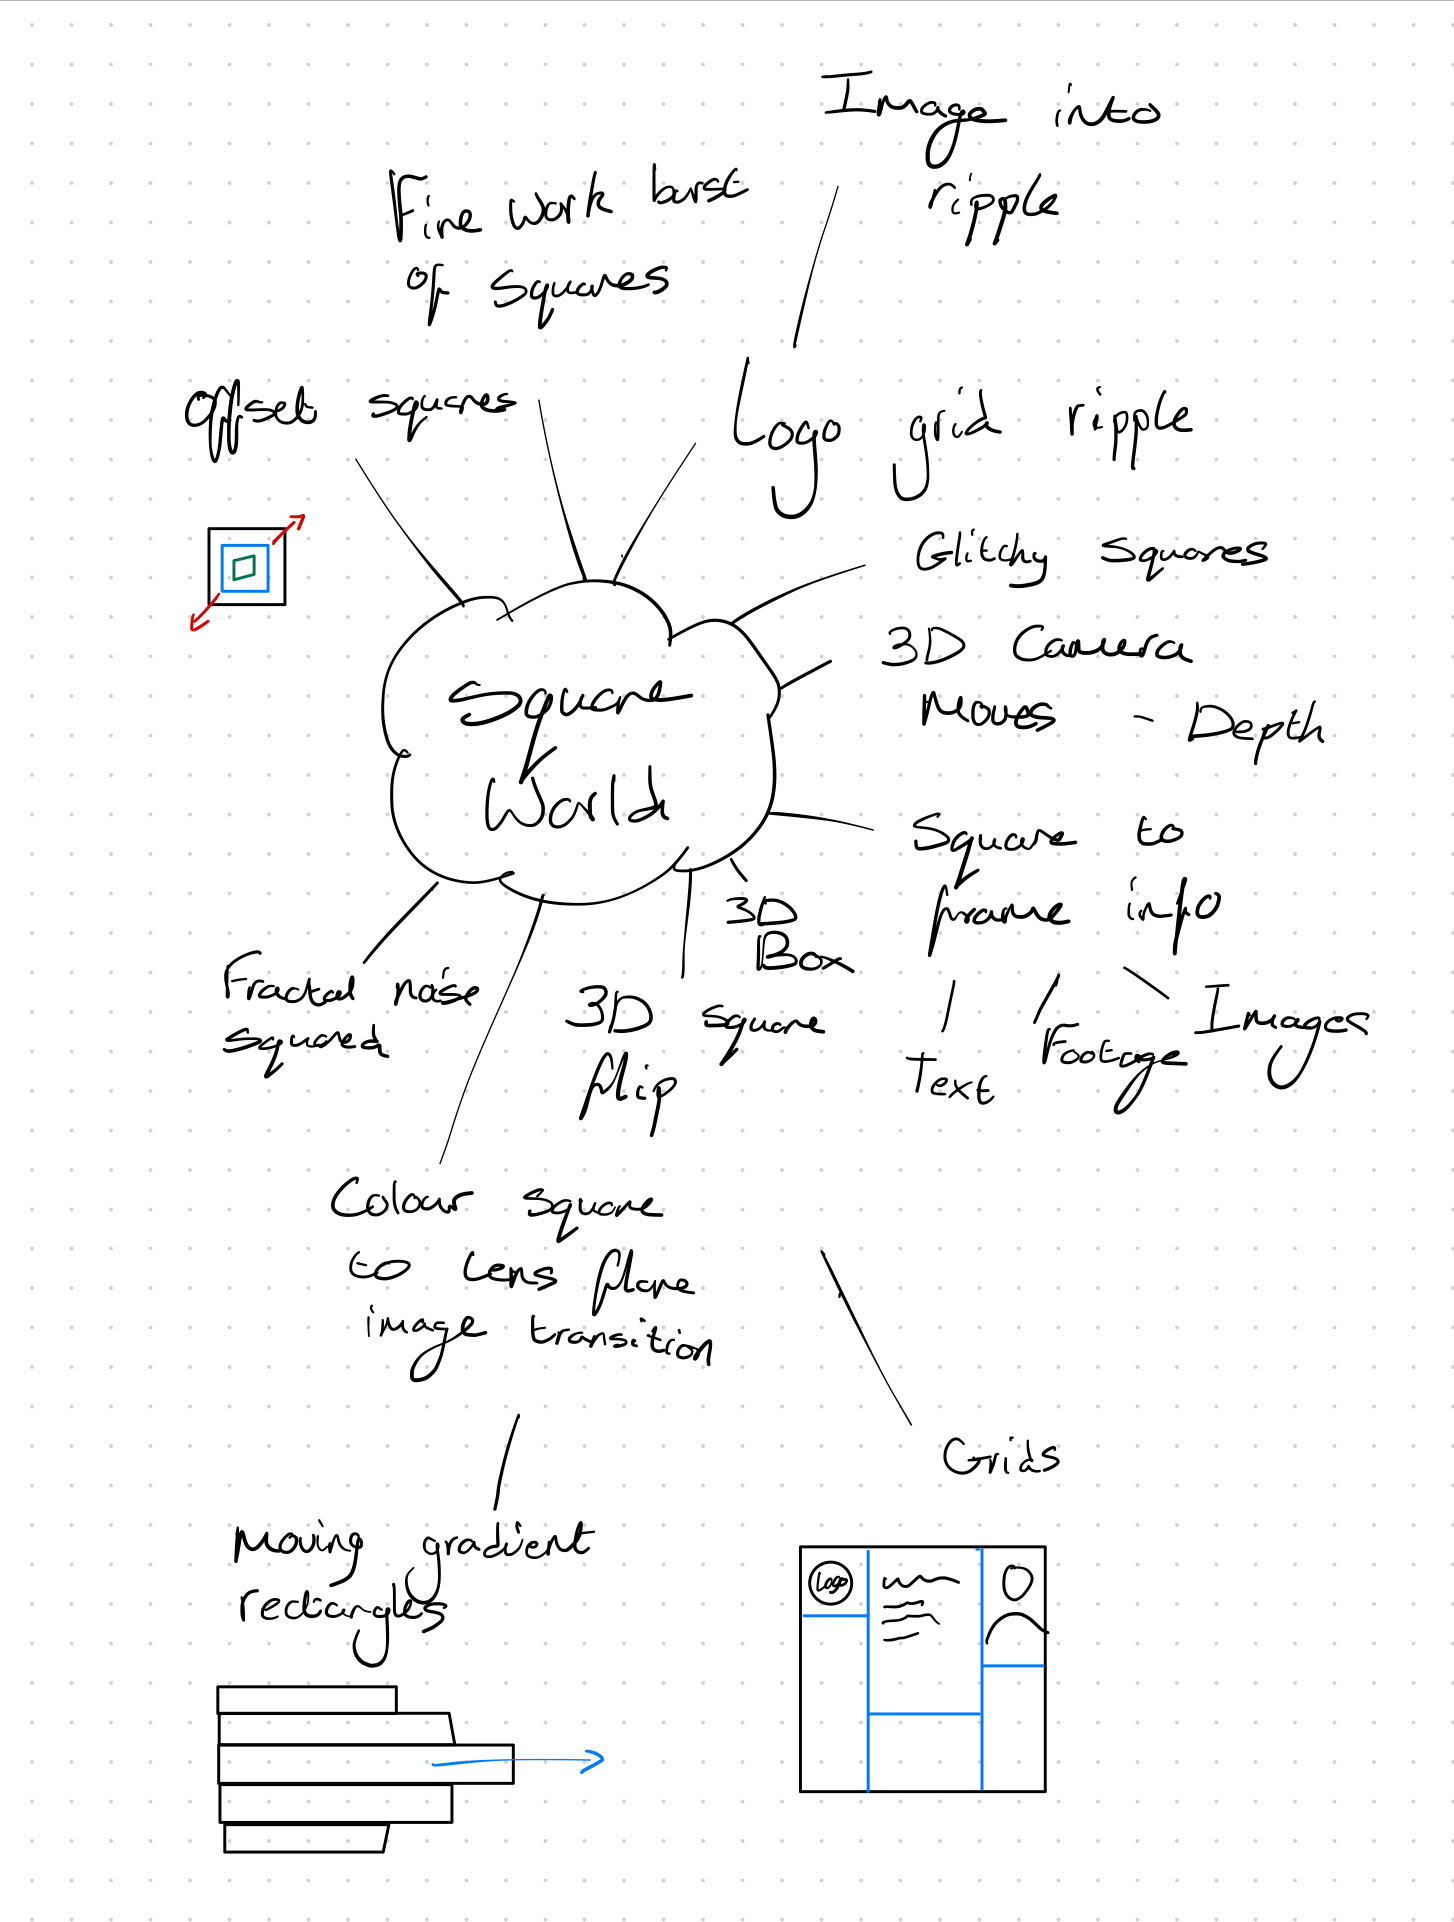 Image into
ripple
Fire work burst
of squares
offset squares
Logo grid ripple
Glitchy squares
3D Camera
Moves - Depth
Square
World
Square to
frame info
Text
Footage
Images
3D
Box
3D square
flip
Fractal noise
squared
Colour square
to Lens flare
image transition
Grids
Moving gradient
rectangles
Logo